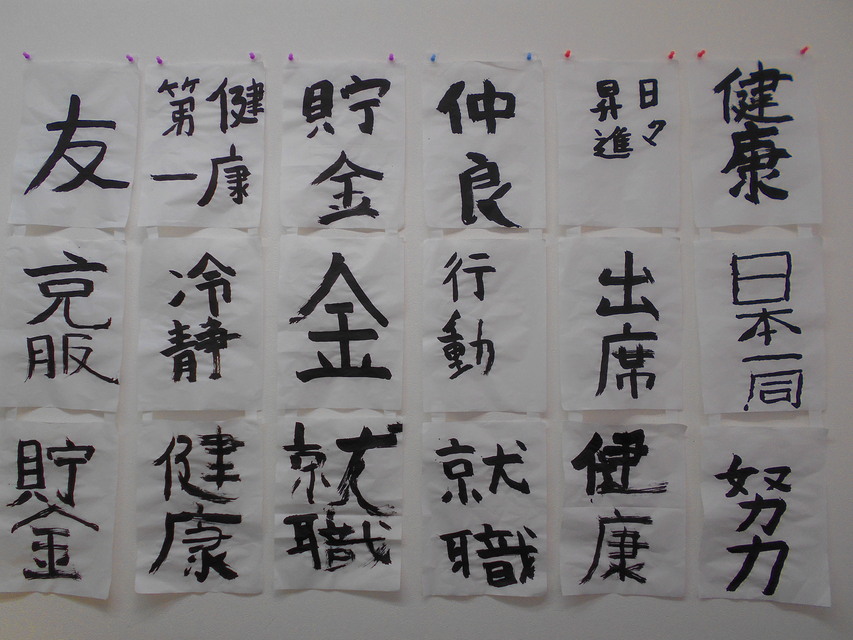 健康
日々
昇進
仲良
貯金
健康
第一
友
日本一同
出席
行動
金
冷静
克服
努力
健康
就職
就職
健康
貯金